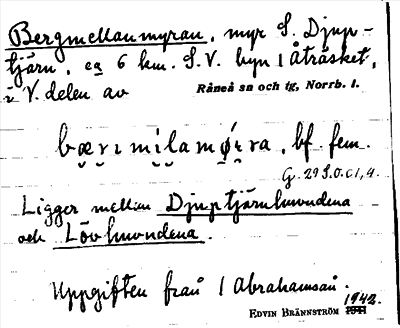 Bergmellanmyran, myr S. Djup-
tjärn, ca 6 km. S.V. byn 1 Åträsket,
i V. delen av Råneå sn och tg, Norrb. l.
bf. fem.
G. 29 S.O. c1,4.
Ligger mellan Djuptjärnhuvudena
och Lövhuvudena.
Uppgiften från 1 Abrahamsan.
EDVIN BRÄNNSTRÖM 1942.